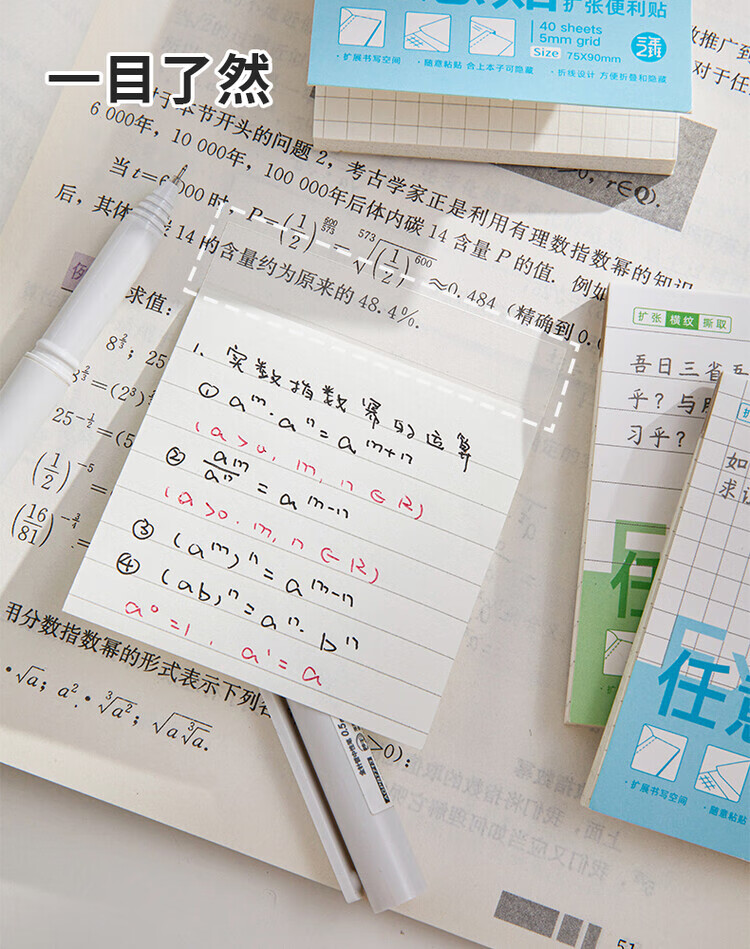 一目了然
扩张便利贴
40 sheets
5mm grid
Size 75X90mm
· 扩展书写空间 · 随意粘贴 合上本子可隐藏 · 折线设计 方便折叠和隐藏
推广到
对于任
对于本节开头的问题 2，考古学家正是利用有理数指数幂的知识
6 000年，10 000年，100 000年后体内碳 14 含量 P 的值．例如
>0, r∈Q).
当 t=6 000 时，P=(1/2)^(6000/5730)=573√(1/2)^600≈0.484（精确到 0.0
后，其体内碳 14 的含量约为原来的 48.4%．
例
求值：
8^(2/3)；25
8^(2/3)=(2³)
25^(-1/2)=(5
(1/2)^-5=
(16/81)^(-3/4)=
1、实数指数幂的运算
① aᵐ·aⁿ=aᵐ⁺ⁿ
(a>0, m, n∈R)
② aᵐ/aⁿ=aᵐ⁻ⁿ
(a>0. m, n∈R)
③ (aᵐ)ⁿ=aᵐ⁻ⁿ
④ (ab)ⁿ=aⁿ·bⁿ
a⁰=1, a¹=a
用分数指数幂的形式表示下列各
·√a；a²·³√a²；√a³√a．
>0)：
扩张 横纹 撕取
吾日三省吾
乎？与朋
习乎？
任
如
求
任意
· 扩展书写空间 · 随意粘贴
51